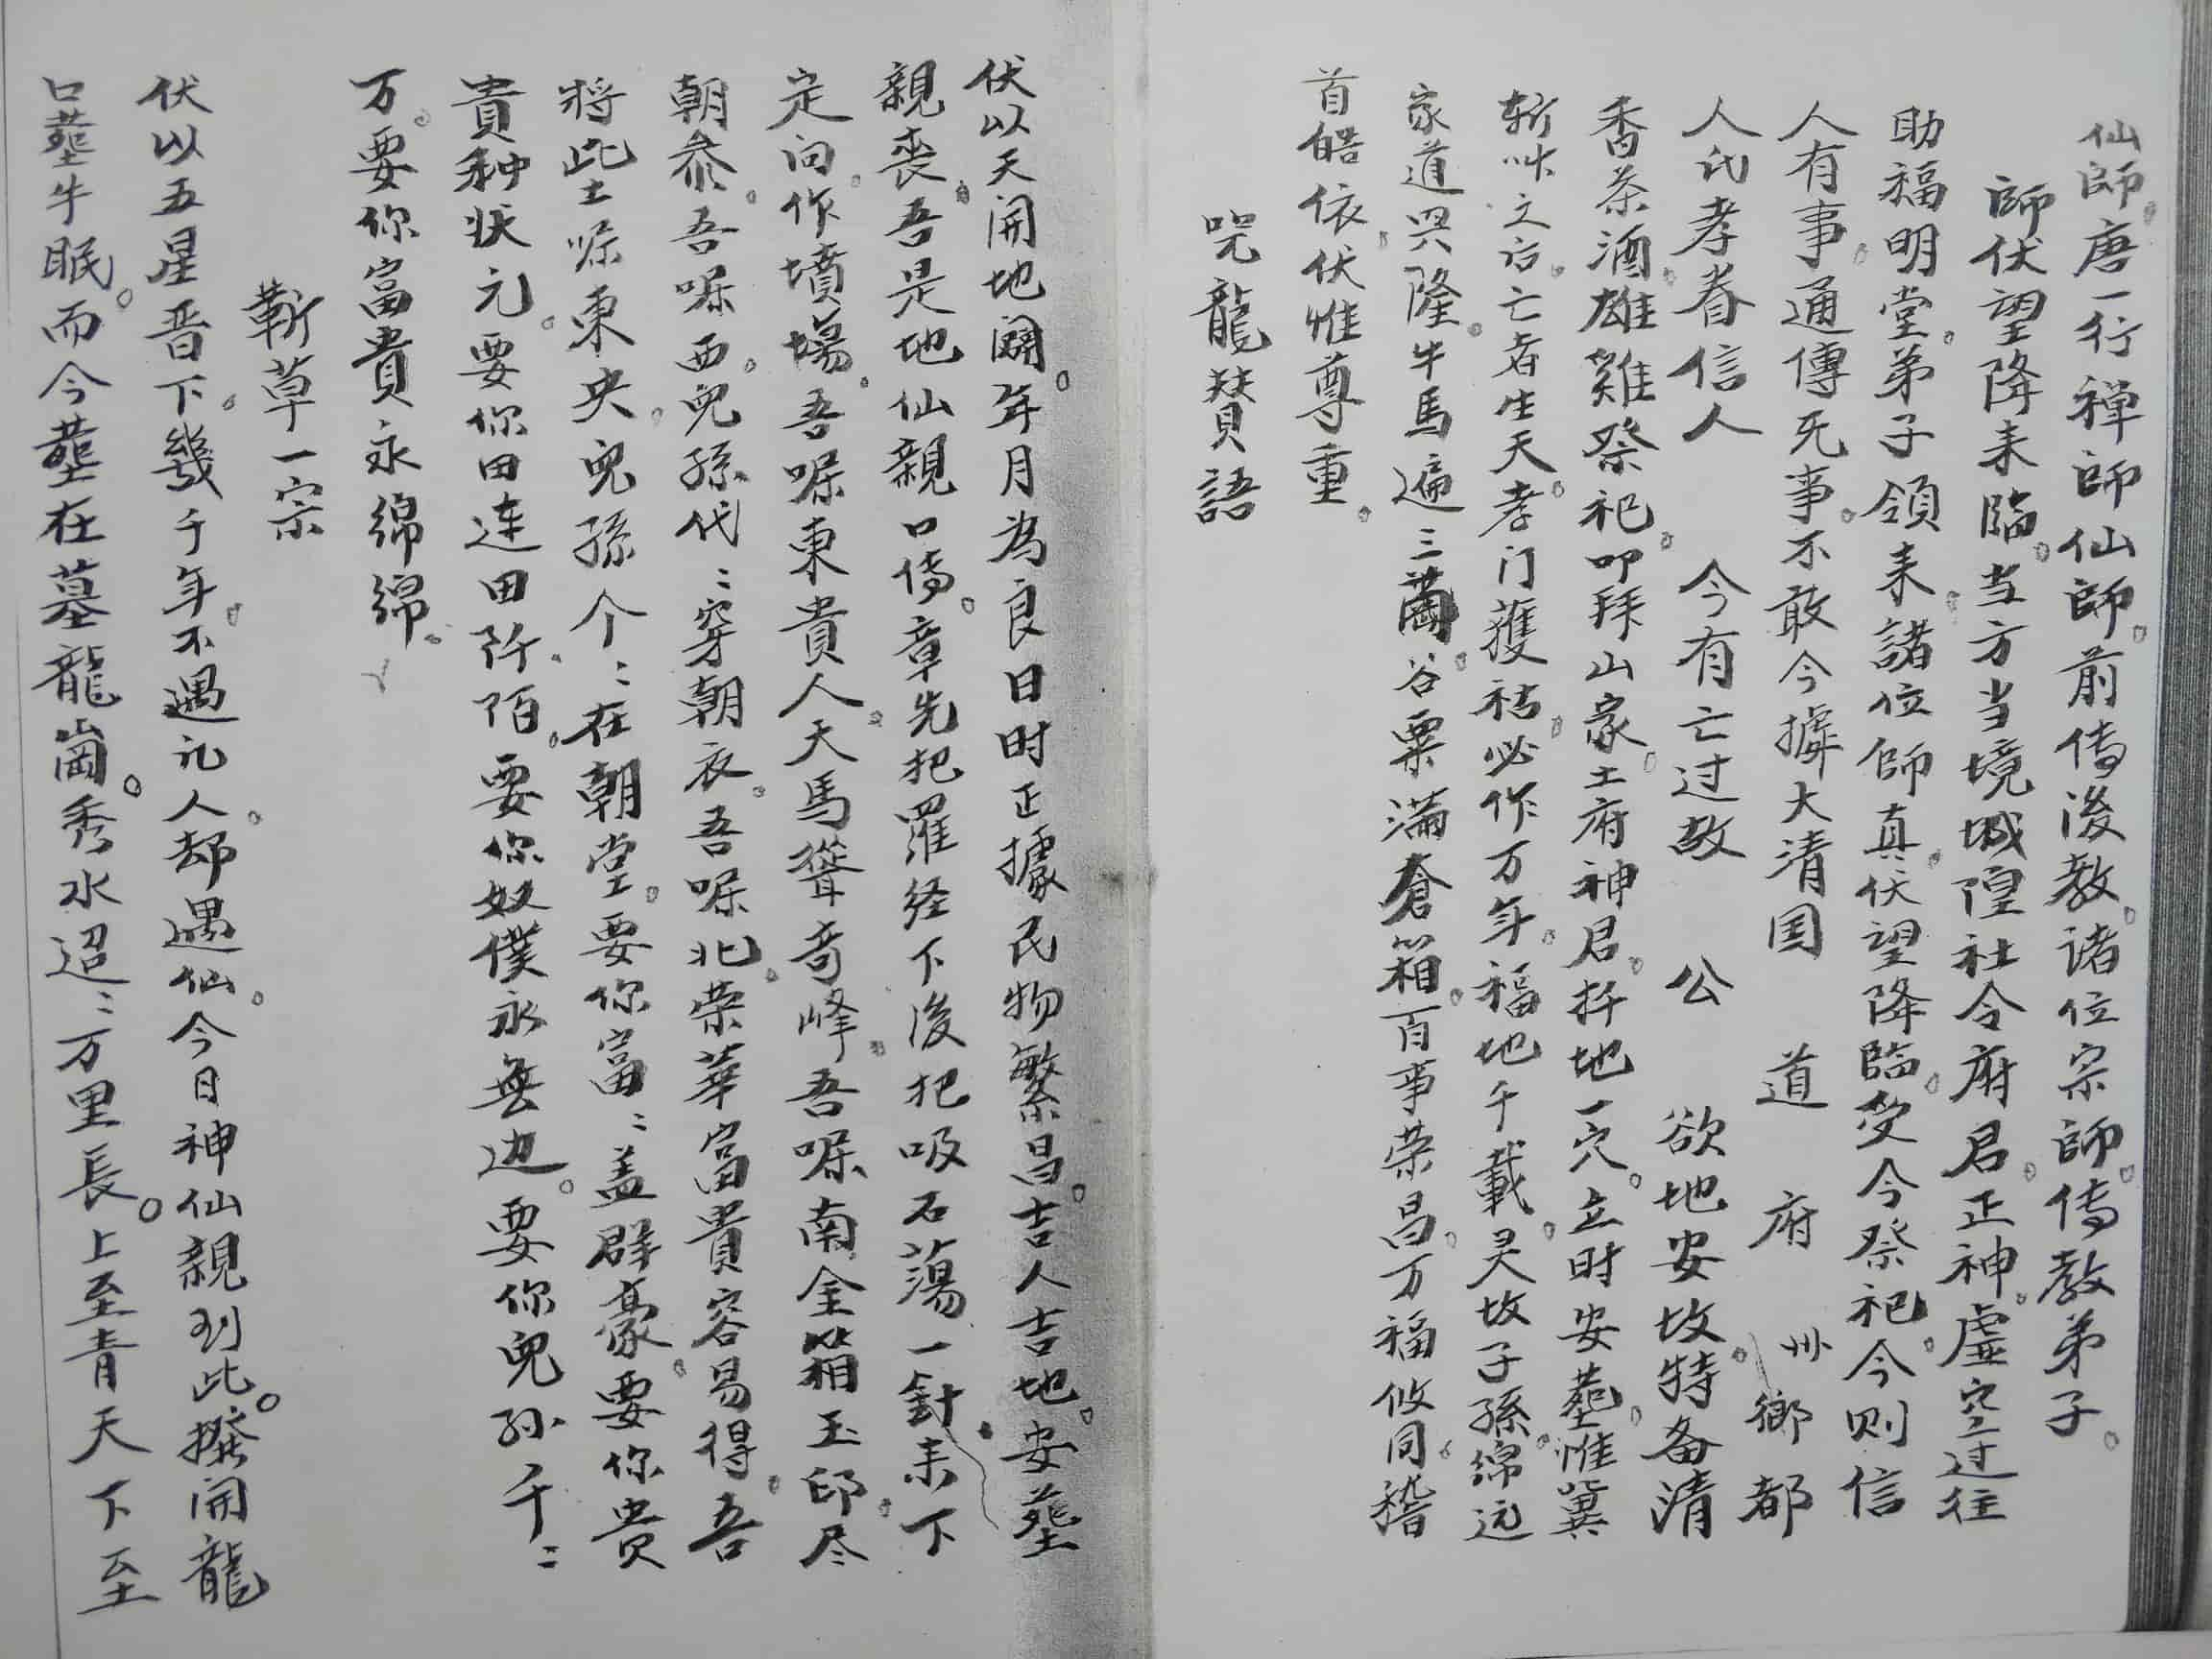 仙師。唐一行禅師仙師。前傳後教。诸位宗師。傳教弟子。
師伏望降来臨。当方当境城隍社令府君。正神。虚空过往
助福明堂。弟子領来。諸位師真。伏望降臨。受今祭祀。今则信
人有事。通傳死事。不敢今據大清国 道 府 州 鄉 都
人氏孝眷信人 今有亡过故 公 欲地安坟。特备清
香茶酒。雄雞祭祀。叩拜山家。土府神君。扦地一穴。立时安塟。惟冀
斩 之后。亡者生天。孝门獲 。必作万年。福地千載。灵坟子孫。綿远
家道興隆。牛馬遍三崗。谷粟滿倉箱。百事荣昌。万福攸同。稽
首皓依。伏惟尊重。
咒龍賛語
伏以天開地闢。年月為良日时正據民物繁昌。吉人吉地。安塟
親喪。吾是地仙親口傳。章先把羅经下後把吸石蕩一針。来下
定向。作墳場。吾嘱東貴人。天馬聳奇峰。吾嘱南金箱玉印。尽
朝叅。吾嘱西。兒孫代〻穿朝衣。吾嘱北。荣華富貴容易得。吾
將此土嘱東央。兒孫个〻在朝堂。要你富〻盖群豪。要你贵
貴种状元。要你田连田阡。陌。要你奴僕永無边。要你兒孙千〻
万。要你富貴永綿綿。
斬草一宗
伏以五星晋下。幾千年。不遇凡人。却遇仙。今日神仙親到此。撥開龍
口塟牛眠。而今塟在墓龍崗。秀水迢〻万里長。上至青天下至